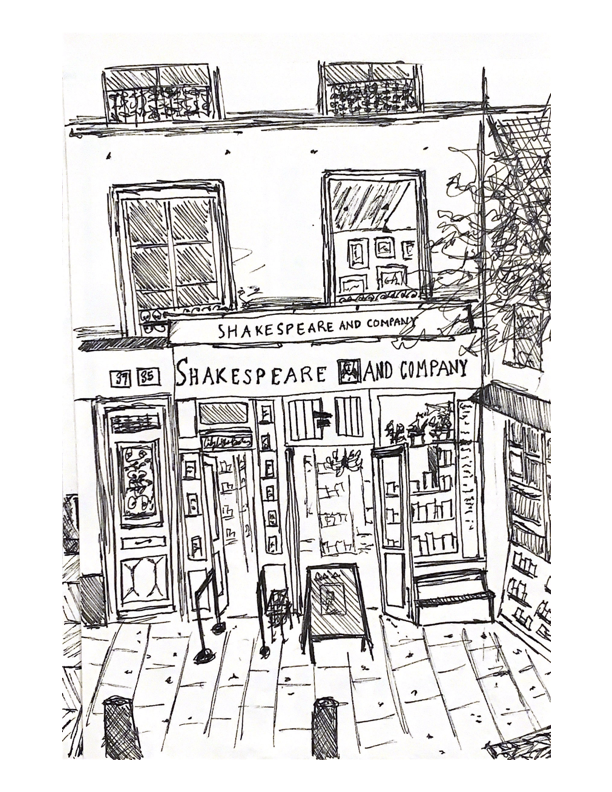 SHAKESPEARE AND COMPANY
SHAKESPEARE AND COMPANY
37 35